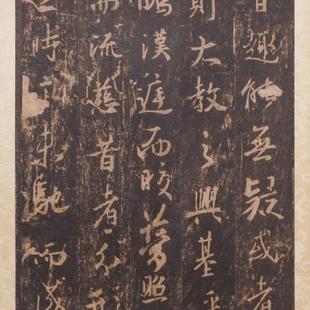 旨趣能無疑或者
則大教之興基乎
騰漢庭而皎夢照
而流慈昔者分形
之時言未馳而成